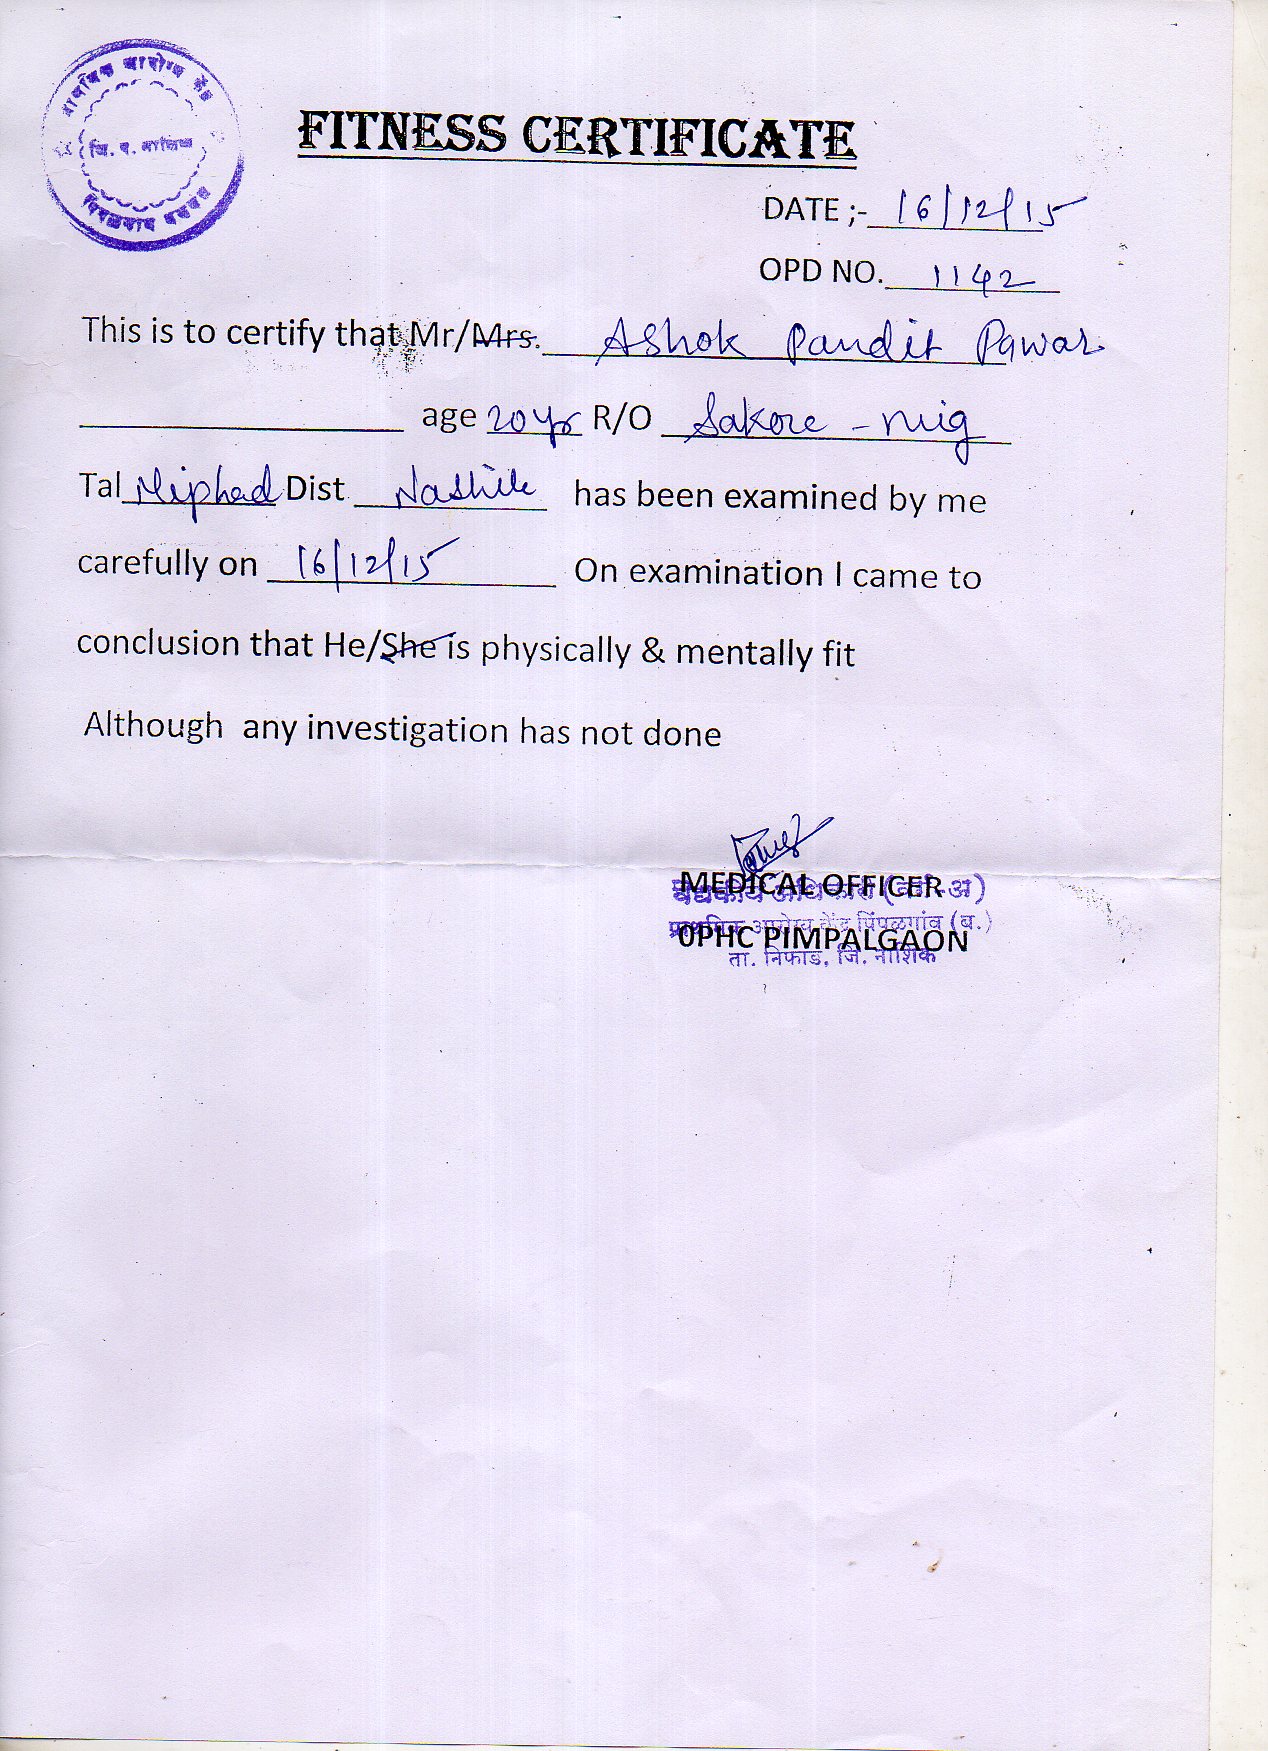 प्राथमिक आरोग्य केंद्र
जि. प. नाशिक
पिंपळगाव बसवंत
FITNESS CERTIFICATE
DATE ;- 16/12/15
OPD NO. 1142
This is to certify that Mr/Mrs. Ashok Pandit Pawar
age 20 yrs R/O Sakore - mig
Tal Niphad Dist Nashik has been examined by me
carefully on 16/12/15 On examination I came to
conclusion that He/She is physically & mentally fit
Although any investigation has not done
MEDICAL OFFICER
वैद्यकीय अधिकारी (वर्ग-अ)
0PHC PIMPALGAON
प्राथमिक आरोग्य केंद्र पिंपळगांव (ब.)
ता. निफाड, जि. नाशिक